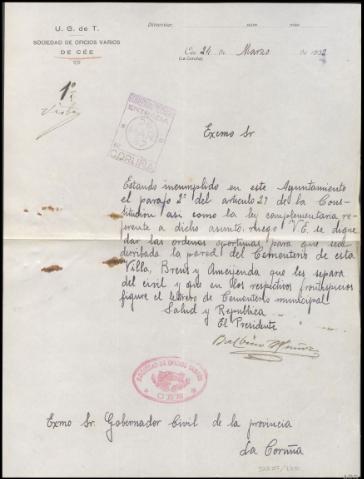 U. G. de T.
SOCIEDAD DE OFICIOS VARIOS
DE CÉE
Cée 24 de Marzo de 1932
(La Coruña)
ENTRADA
CORUÑA
Exmo Sr
Estando incumplido en este Ayuntamiento
el parrafo 2º del articulo 27 de la Cons-
titucion asi como la ley complementaria re-
ferente a dicho asunto, ruego V.E. se digne
dar las ordenes oportunas, para que sea
derribada la pared del Cementerio de esta
Villa, Brens y Ameijenda que les separa
del civil y que en los respectivos frontispicios
figure el letrero de Cementerio municipal
Salud y Republica
El Presidente
SOCIEDAD DE OFICIOS VARIOS
CEE
Exmo Sr. Gobernador Civil de la provincia
La Coruña